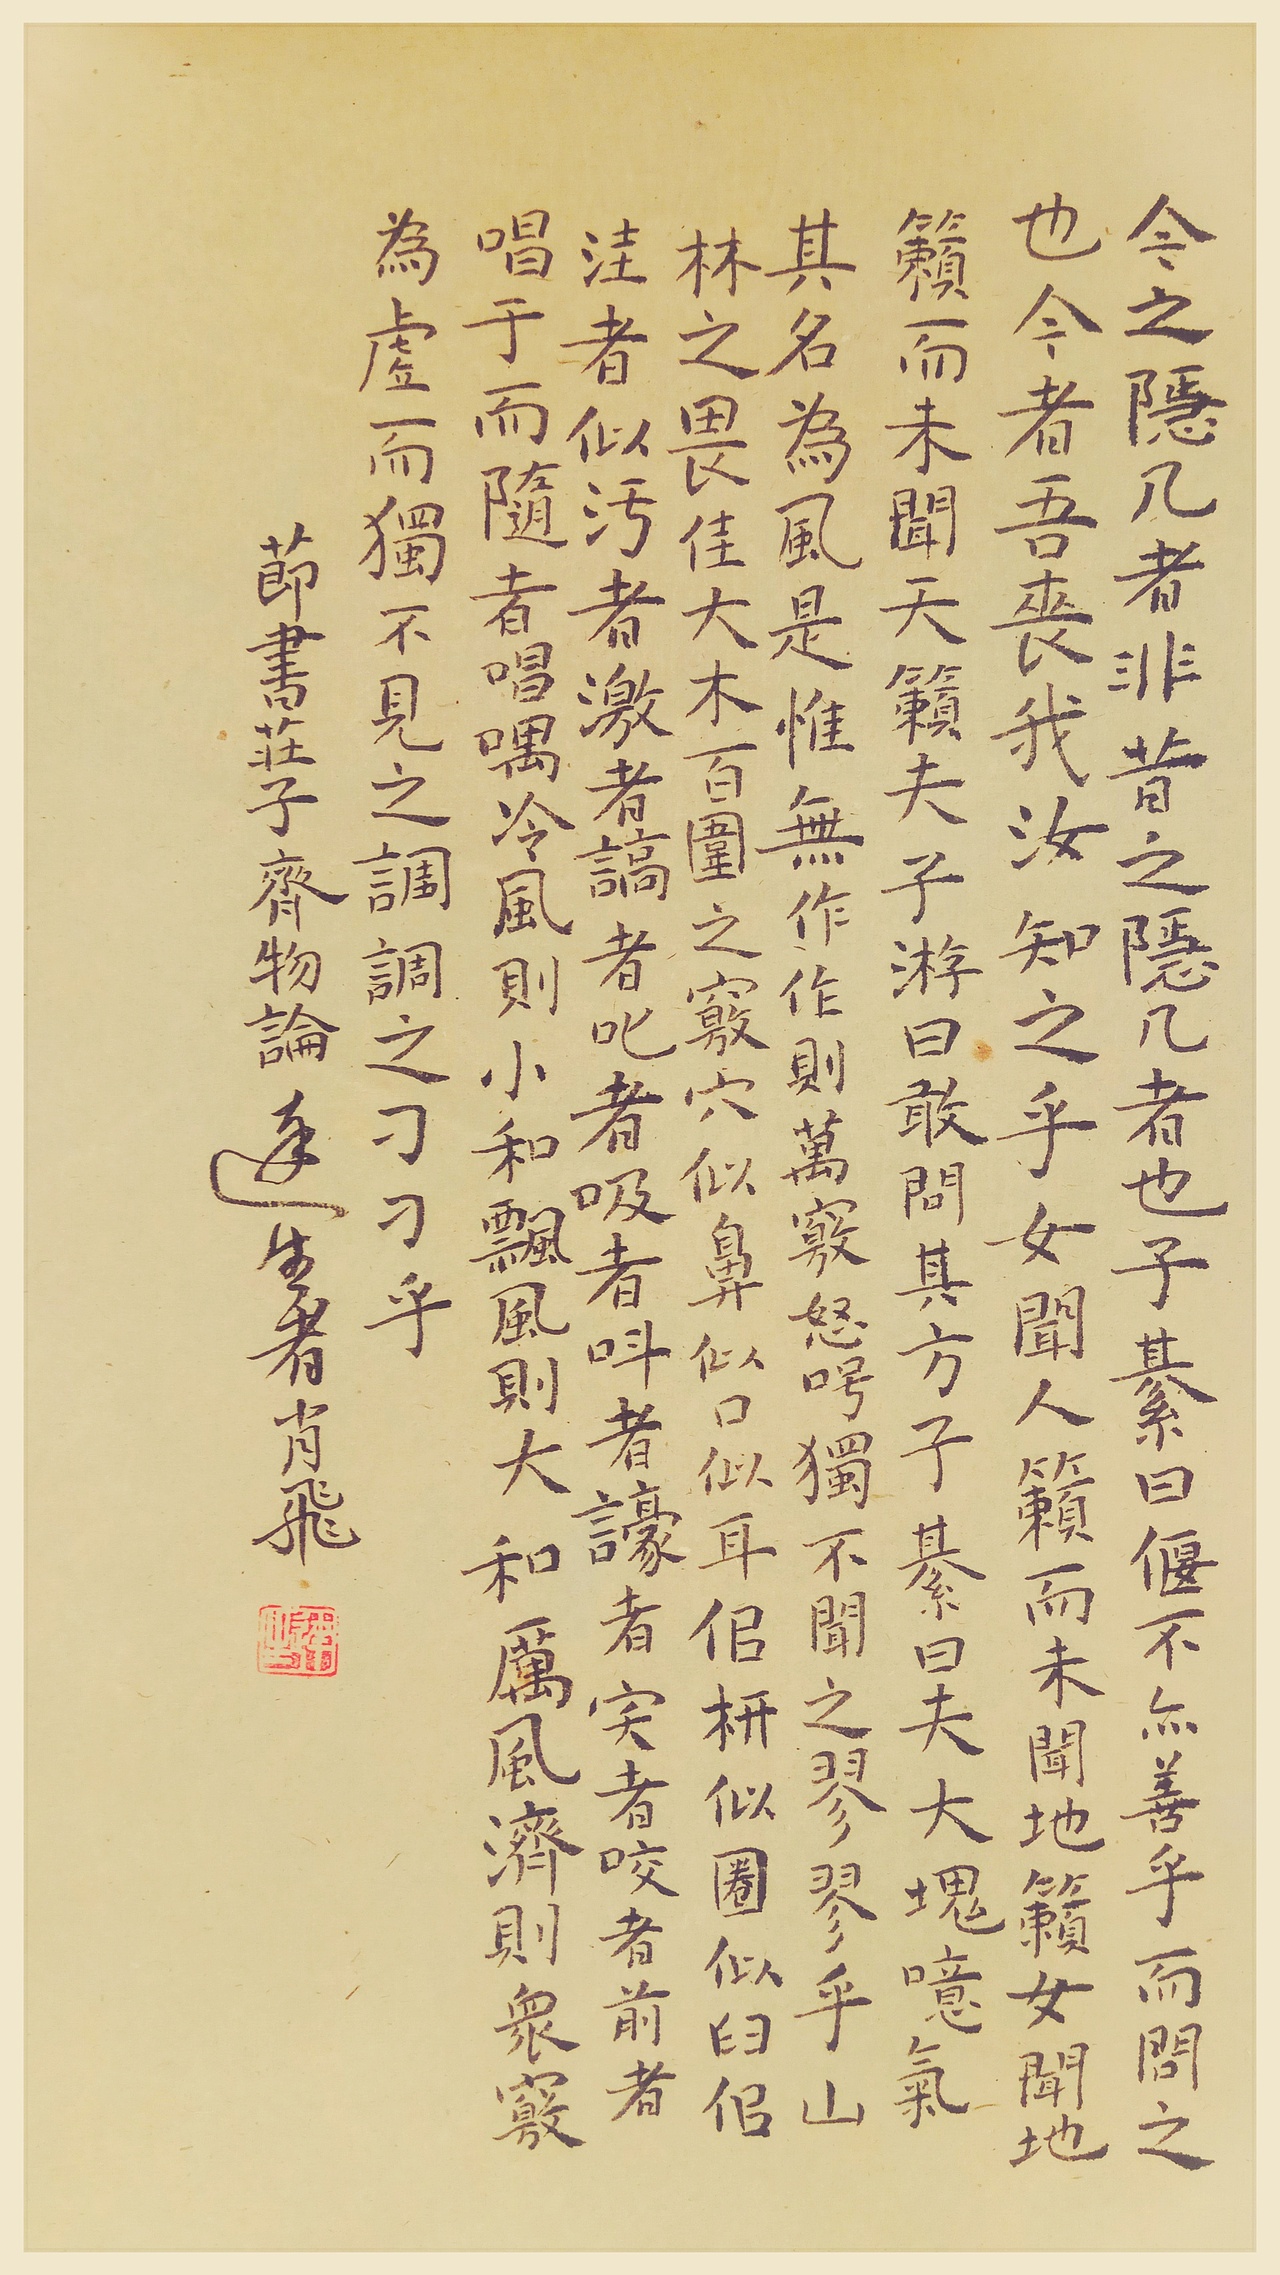 今之隱几者非昔之隱几者也子綦曰偃不亦善乎而問之
也今者吾喪我汝知之乎女聞人籟而未聞地籟女聞地
籟而未聞天籟夫子游曰敢問其方子綦曰夫大塊噫氣
其名為風是惟無作作則萬竅怒呺獨不聞之翏翏乎山
林之畏佳大木百圍之竅穴似鼻似口似耳佀枅似圈似臼佀
洼者似汚者激者謞者叱者吸者叫者譹者宎者咬者前者
唱于而隨者唱喁冷風則小和飄風則大和厲風濟則衆竅
為虛而獨不見之調調之刁刁乎
節書莊子齊物論達生者肖飛